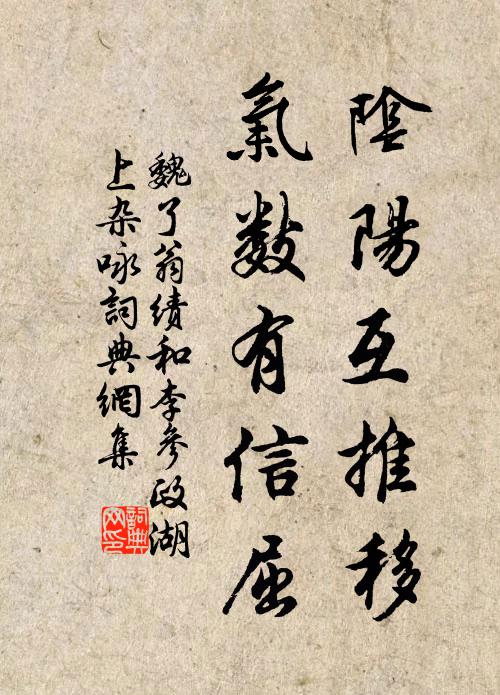 陰陽互推移
氣数有信屈
魏了翁績和李參政湖
上杂咏詞典網集
詞典
网印